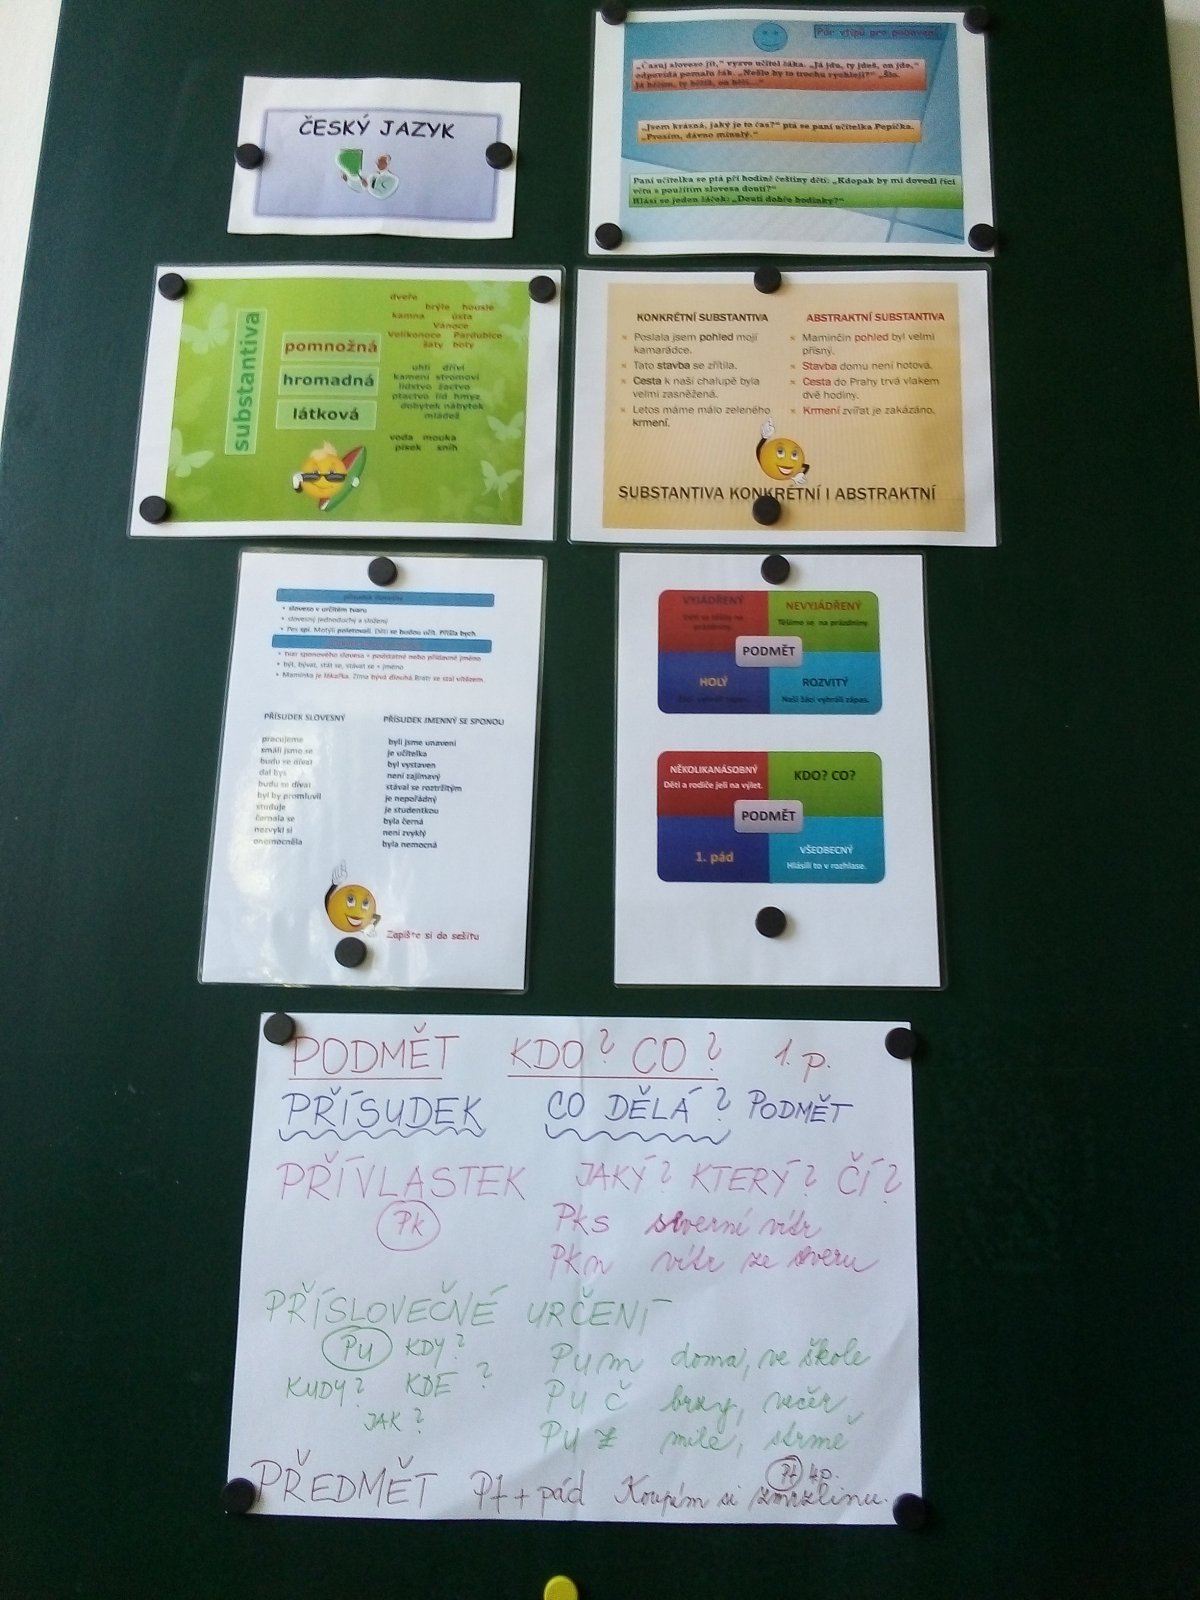 ČESKÝ JAZYK
Pár vtipů pro pobavení
„Časuj sloveso jít,“ vyzve učitel žáka. „Já jdu, ty jdeš, on jde,“
odpovídá pomalu žák. „Nešlo by to trochu rychleji?“ „Šlo.
Já běžím, ty běžíš, on běží...“
„Jsem krásná, jaký je to čas?“ ptá se paní učitelka Pepíčka.
„Prosím, dávno minulý.“
Paní učitelka se ptá při hodině češtiny dětí: „Kdopak by mi dovedl říci
větu s použitím slovesa douti?“
Hlásí se jeden žáček: „Doutí dobře hodinky?“
substantiva
pomnožná
hromadná
látková
dveře
brýle housle
kamna ústa
Vánoce
Velikonoce Pardubice
šaty boty
uhlí dříví
kamení stromoví
lidstvo žactvo
ptactvo lid hmyz
dobytek nábytek
mládež
voda mouka
písek sníh
KONKRÉTNÍ SUBSTANTIVA
Poslala jsem pohled mojí
kamarádce.
Tato stavba se zřítila.
Cesta k naší chalupě byla
velmi zasněžená.
Letos máme málo zeleného
krmení.
ABSTRAKTNÍ SUBSTANTIVA
Maminčin pohled byl velmi
přísný.
Stavba domu není hotová.
Cesta do Prahy trvá vlakem
dvě hodiny.
Krmení zvířat je zakázáno.
SUBSTANTIVA KONKRÉTNÍ I ABSTRAKTNÍ
přísudek slovesný
sloveso v určitém tvaru
slovesný jednoduchý a složený
Pes spí. Motýli poletovali. Děti se budou učit. Přišla bych.
tvar sponového slovesa + podstatné nebo přídavné jméno
být, bývat, stát se, stávat se + jméno
Maminka je lékařka. Zima bývá dlouhá. Bratr se stal vítězem.
PŘÍSUDEK SLOVESNÝ
pracujeme
smáli jsme se
budu se dívat
dal bys
budu se dívat
byl by promluvil
studuje
černala se
nezvykl si
onemocněla
PŘÍSUDEK JMENNÝ SE SPONOU
byli jsme unaveni
je učitelka
byl vystaven
není zajímavý
stával se roztržitým
je nepořádný
je studentkou
byla černá
není zvyklý
byla nemocná
Zapište si do sešitu
VYJÁDŘENÝ
Děti se těšily na
prázdniny.
NEVYJÁDŘENÝ
Těšíme se na prázdniny
PODMĚT
HOLÝ
Žáci vyhráli zápas.
ROZVITÝ
Naši žáci vyhráli zápas.
NĚKOLIKANÁSOBNÝ
Děti a rodiče jeli na výlet.
KDO? CO?
PODMĚT
1. pád
VŠEOBECNÝ
Hlásili to v rozhlase.
PODMĚT KDO? CO? 1. p.
PŘÍSUDEK CO DĚLÁ? PODMĚT
PŘÍVLASTEK JAKÝ? KTERÝ? ČÍ?
Pk
Pks severní vítr
Pkn vítr ze severu
PŘÍSLOVEČNÉ URČENÍ
Pu KDY?
KUDY? KDE?
JAK?
Pum doma, ve škole
Pu č brzy, večer
Pu z mile, strmě
PŘEDMĚT Pt + pád Koupím si zmrzlinu.
Pt 4p.